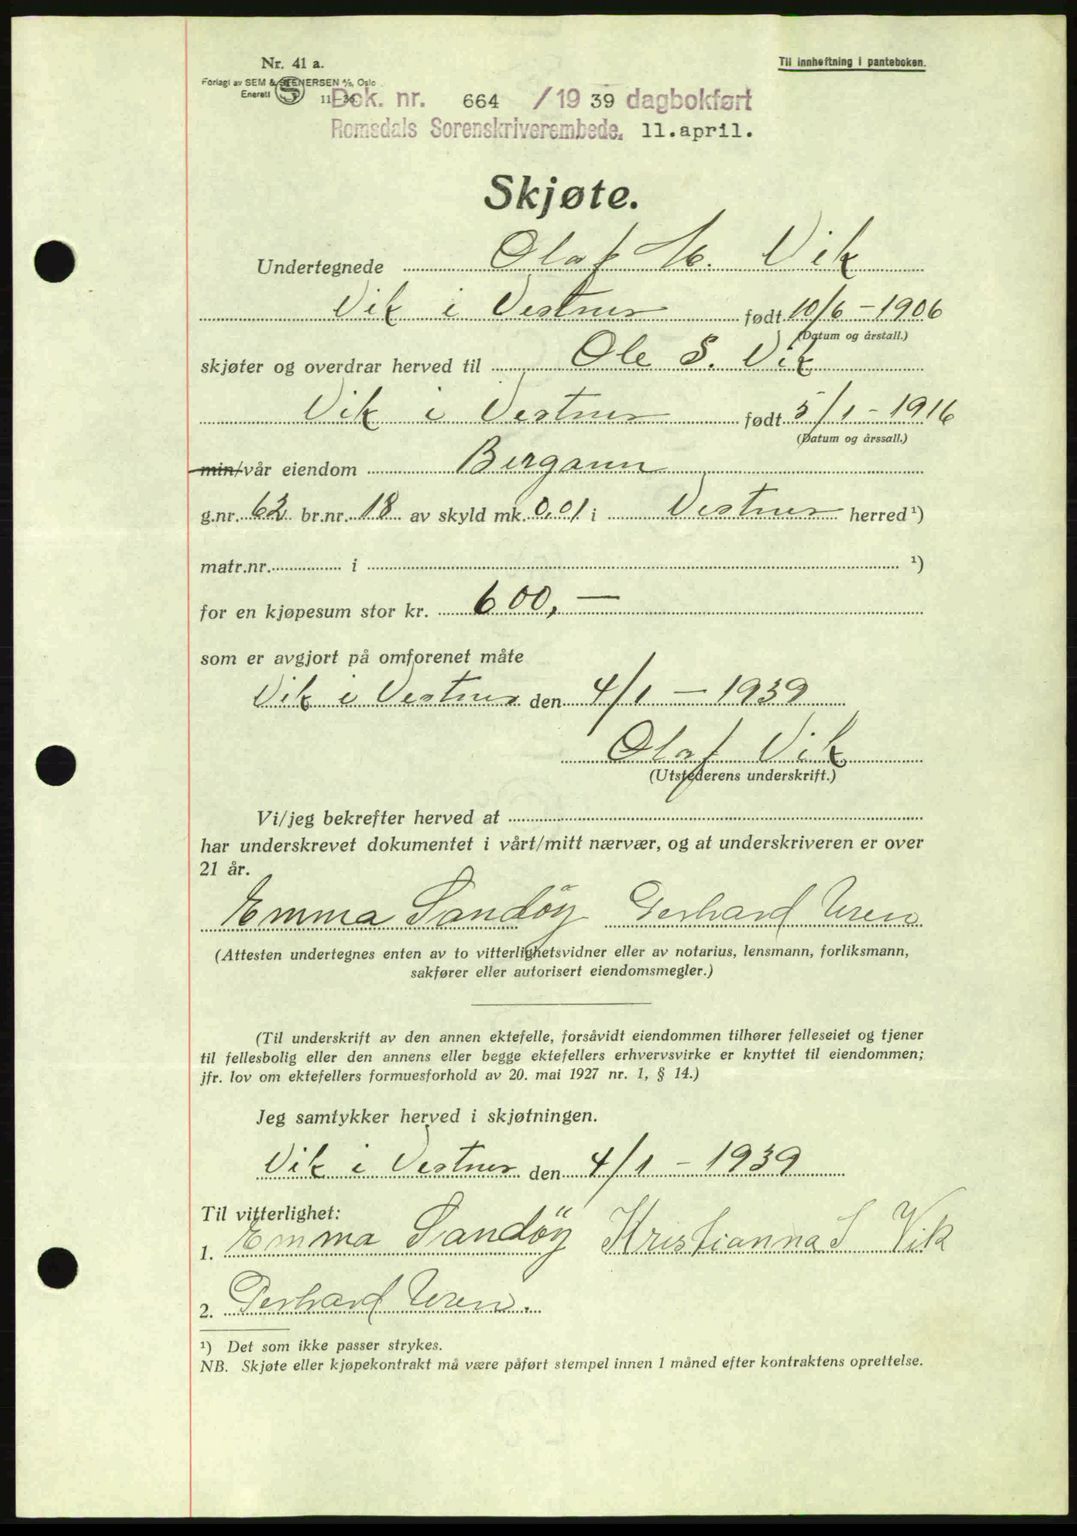 Nr. 41 a.
Til innheftning i panteboken.
Forlagt av SEM & STENERSEN A/S, Oslo
Enerett
Dok. nr. 664 /1939 dagbokført
Romsdals Sorenskriverembede. 11.april.
Skjøte.
Undertegnede Olaf M. Vik
Vik i Vestnes født 10/6-1906
(Datum og årstall.)
skjøter og overdrar herved til Ole S. Vik
Vik i Vestnes født 5/1-1916
(Datum og årssall.)
min/vår eiendom Bergaun
g.nr. 62 br.nr. 18 av skyld mk. 0,01 i Vestnes herred ¹)
matr.nr. i ¹)
for en kjøpesum stor kr. 600,—
som er avgjort på omforenet måte
Vik i Vestnes den 4/1-1939
Olaf Vik
(Utstederens underskrift.)
Vi/jeg bekrefter herved at
har underskrevet dokumentet i vårt/mitt nærvær, og at underskriveren er over
21 år.
Emma Sandöy Gerhard Uren
(Attesten undertegnes enten av to vitterlighetsvidner eller av notarius, lensmann, forliksmann,
sakfører eller autorisert eiendomsmegler.)
(Til underskrift av den annen ektefelle, forsåvidt eiendommen tilhører felleseiet og tjener
til fellesbolig eller den annens eller begge ektefellers erhvervsvirke er knyttet til eiendommen;
jfr. lov om ektefellers formuesforhold av 20. mai 1927 nr. 1, § 14.)
Jeg samtykker herved i skjøtningen.
Vik i Vestnes den 4/1-1939
Til vitterlighet:
1. Emma Sandöy Kristianna S Vik
2. Gerhard Uren.
¹) Det som ikke passer strykes.
NB. Skjøte eller kjøpekontrakt må være påført stempel innen 1 måned efter kontraktens oprettelse.